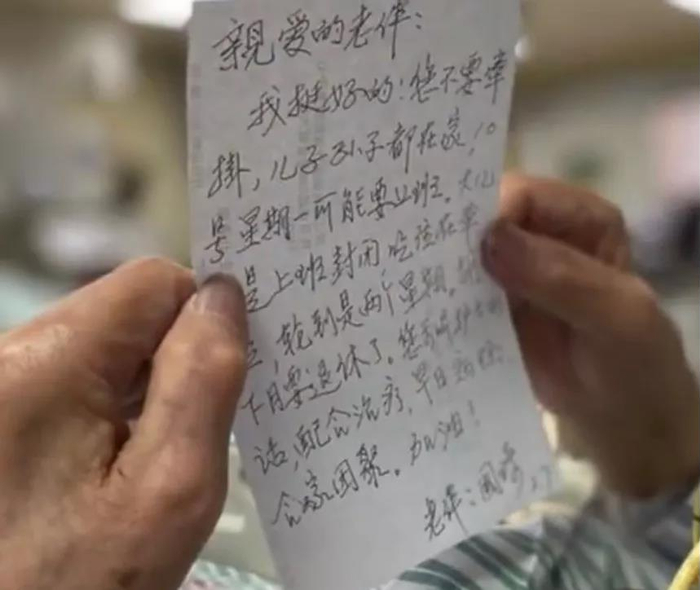 親爱的老伴：
我挺好的！您不要牵
掛，儿子孙子都在家，10
号星期一可能要上班。大儿
是上班封闭，吃住在单
轮到是两个星期。
下月要退休了。您要听护士的
话，配合治疗，早日
合家团聚。加油！
老伴：国
2.7